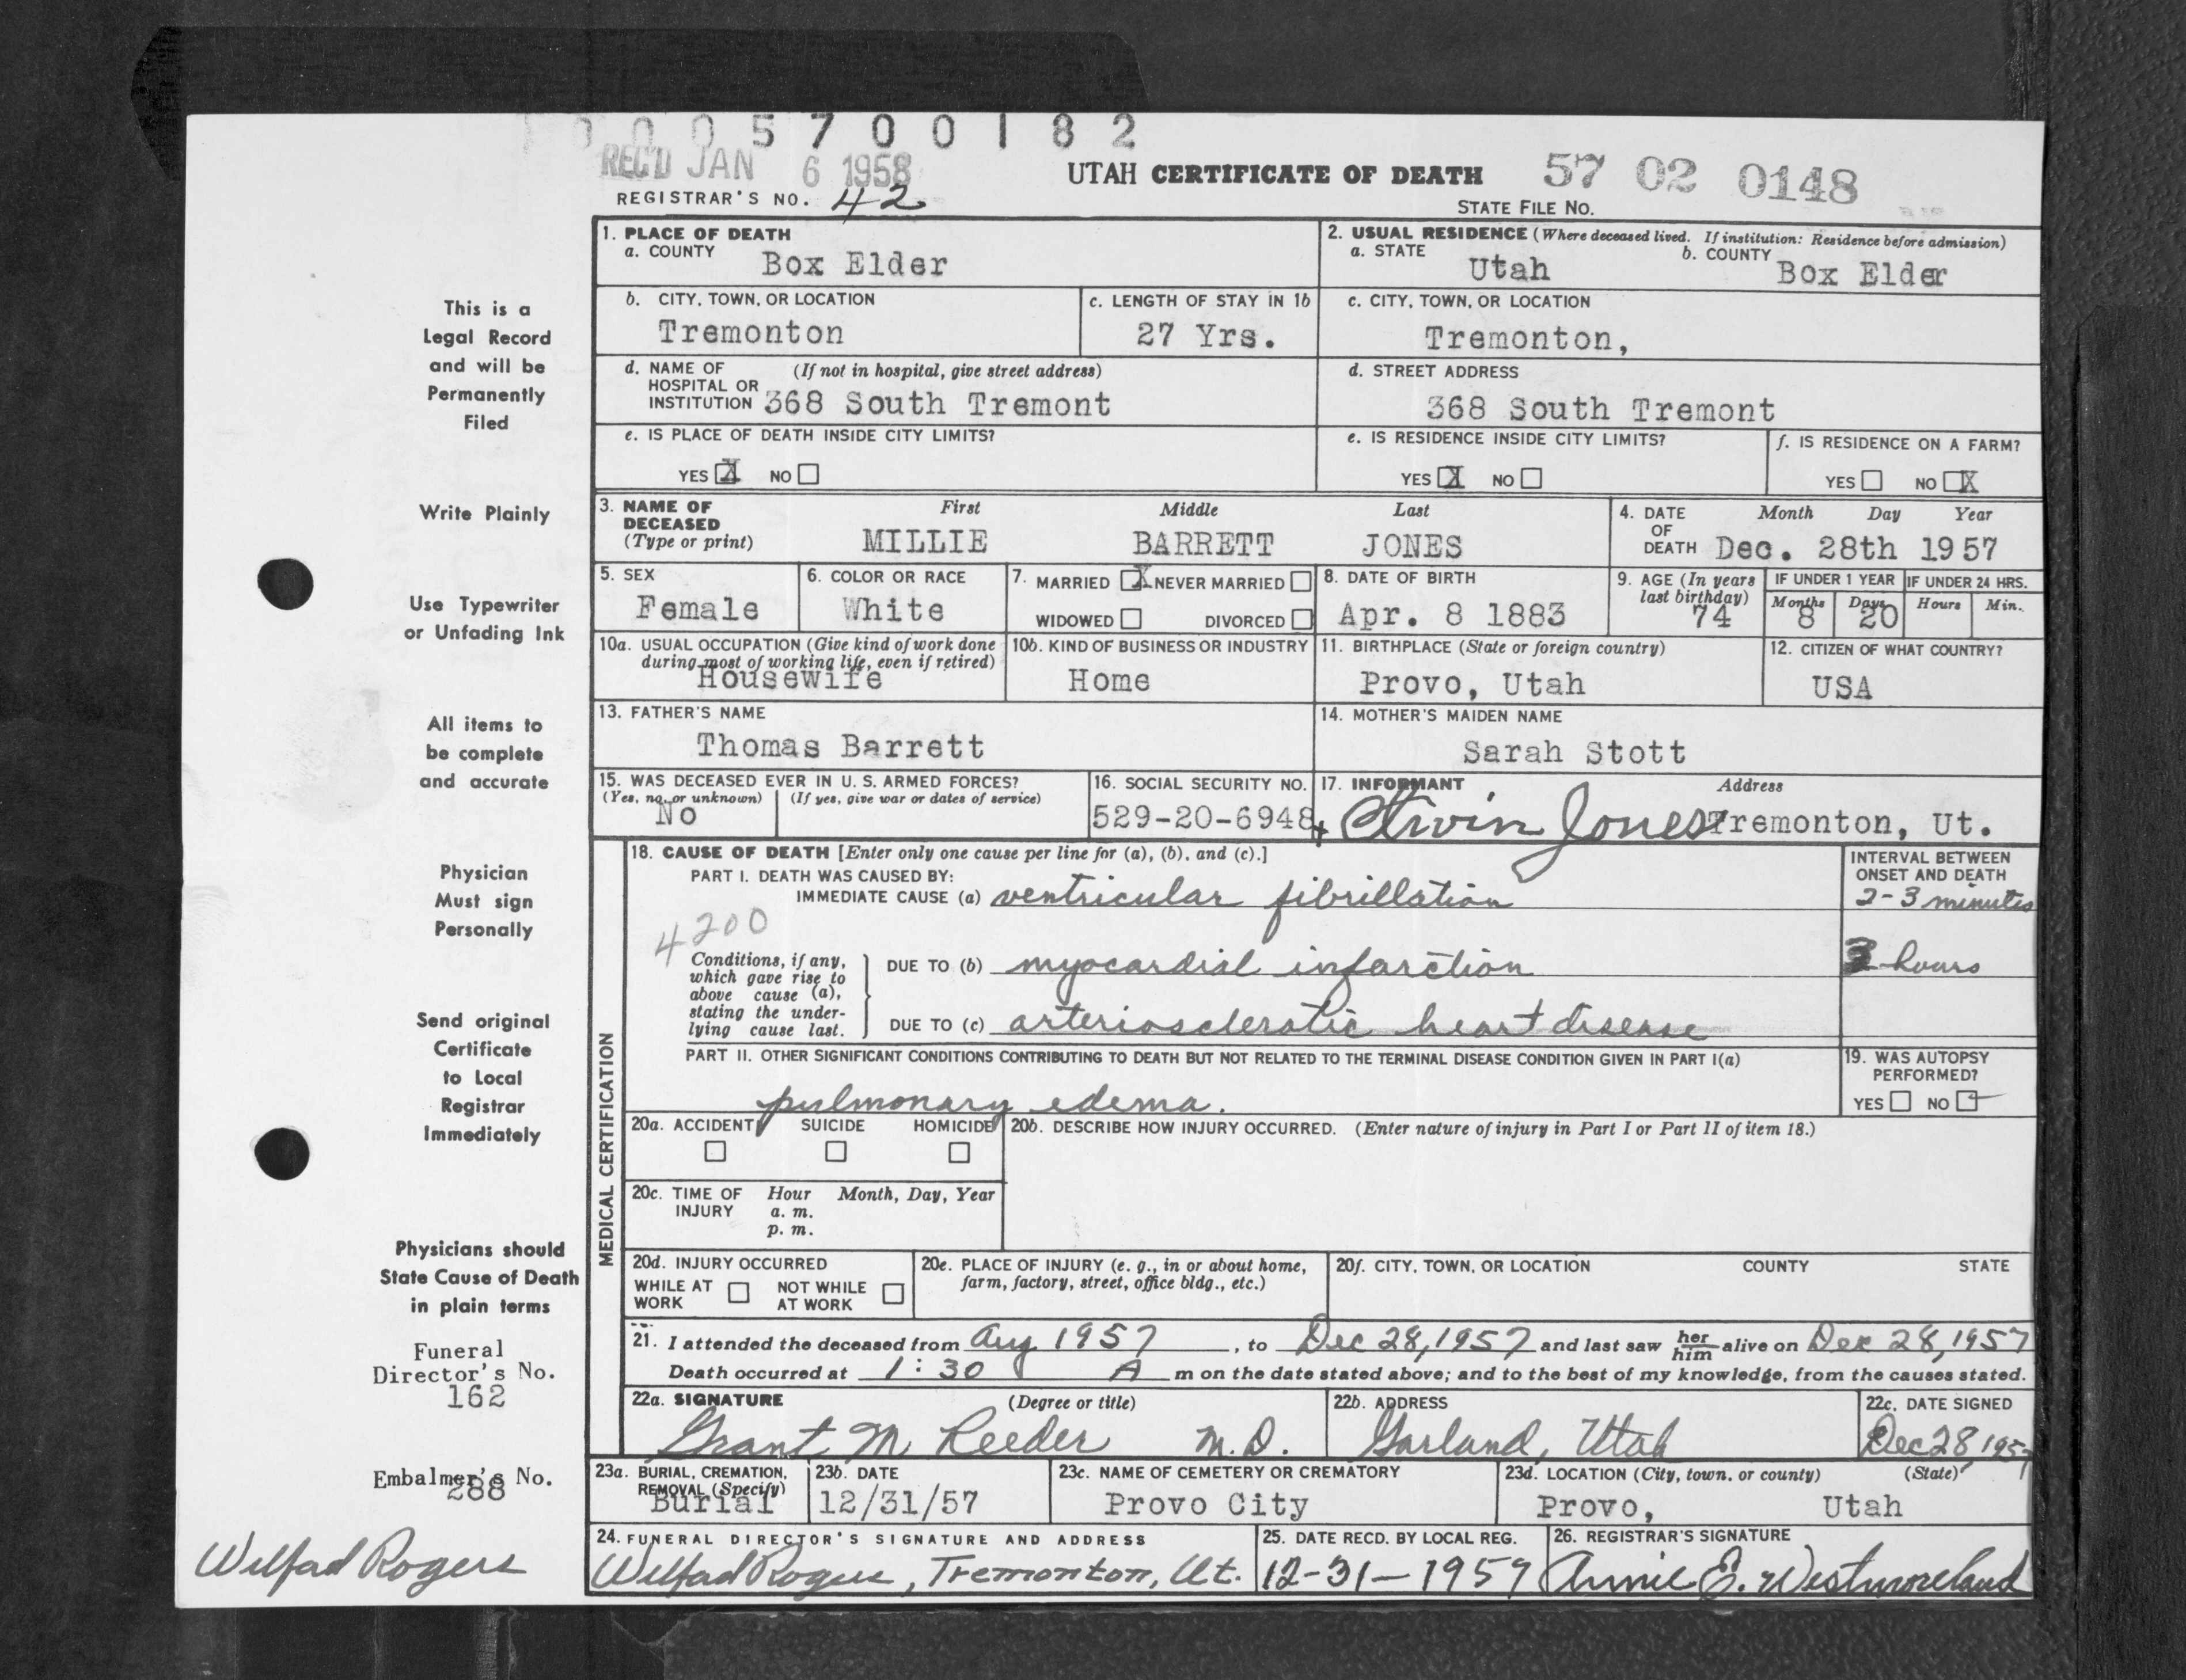 0005700182
REC'D JAN 6 1958
UTAH CERTIFICATE OF DEATH 57 02 0148
REGISTRAR'S NO. 42
STATE FILE NO.
1. PLACE OF DEATH
a. COUNTY Box Elder
2. USUAL RESIDENCE (Where deceased lived. If institution: Residence before admission)
a. STATE Utah b. COUNTY Box Elder
b. CITY, TOWN, OR LOCATION Tremonton
c. LENGTH OF STAY IN 1b 27 Yrs.
c. CITY, TOWN, OR LOCATION Tremonton,
d. NAME OF HOSPITAL OR INSTITUTION (If not in hospital, give street address) 368 South Tremont
d. STREET ADDRESS 368 South Tremont
e. IS PLACE OF DEATH INSIDE CITY LIMITS? YES X NO
e. IS RESIDENCE INSIDE CITY LIMITS? YES X NO
f. IS RESIDENCE ON A FARM? YES NO X
3. NAME OF DECEASED (Type or print) First Middle Last
MILLIE BARRETT JONES
4. DATE OF DEATH Month Day Year
Dec. 28th 1957
5. SEX Female
6. COLOR OR RACE White
7. MARRIED X NEVER MARRIED
WIDOWED DIVORCED
8. DATE OF BIRTH Apr. 8 1883
9. AGE (In years last birthday) 74
IF UNDER 1 YEAR Months 8 Days 20
IF UNDER 24 HRS. Hours Min.
10a. USUAL OCCUPATION (Give kind of work done during most of working life, even if retired) Housewife
10b. KIND OF BUSINESS OR INDUSTRY Home
11. BIRTHPLACE (State or foreign country) Provo, Utah
12. CITIZEN OF WHAT COUNTRY? USA
13. FATHER'S NAME Thomas Barrett
14. MOTHER'S MAIDEN NAME Sarah Stott
15. WAS DECEASED EVER IN U. S. ARMED FORCES?
(Yes, no, or unknown) No (If yes, give war or dates of service)
16. SOCIAL SECURITY NO. 529-20-6948
17. INFORMANT Address
Jones Tremonton, Ut.
MEDICAL CERTIFICATION
18. CAUSE OF DEATH [Enter only one cause per line for (a), (b), and (c).]
PART I. DEATH WAS CAUSED BY:
INTERVAL BETWEEN ONSET AND DEATH
IMMEDIATE CAUSE (a) ventricular fibrillation 2-3 minutes
4200
Conditions, if any, which gave rise to above cause (a), stating the underlying cause last.
DUE TO (b) myocardial infarction 3 hours
DUE TO (c) arteriosclerotic heart disease
PART II. OTHER SIGNIFICANT CONDITIONS CONTRIBUTING TO DEATH BUT NOT RELATED TO THE TERMINAL DISEASE CONDITION GIVEN IN PART I(a)
pulmonary edema.
19. WAS AUTOPSY PERFORMED?
YES NO
20a. ACCIDENT SUICIDE HOMICIDE
20b. DESCRIBE HOW INJURY OCCURRED. (Enter nature of injury in Part I or Part II of item 18.)
20c. TIME OF INJURY Hour Month, Day, Year
a. m.
p. m.
20d. INJURY OCCURRED
WHILE AT WORK NOT WHILE AT WORK
20e. PLACE OF INJURY (e. g., in or about home, farm, factory, street, office bldg., etc.)
20f. CITY, TOWN, OR LOCATION COUNTY STATE
21. I attended the deceased from Aug 1957, to Dec 28, 1957 and last saw her him alive on Dec 28, 1957
Death occurred at 1:30 A m on the date stated above; and to the best of my knowledge, from the causes stated.
22a. SIGNATURE (Degree or title)
Grant M Reeder M.D.
22b. ADDRESS Garland, Utah
22c. DATE SIGNED Dec 28 1957
23a. BURIAL, CREMATION, REMOVAL (Specify) Burial
23b. DATE 12/31/57
23c. NAME OF CEMETERY OR CREMATORY Provo City
23d. LOCATION (City, town, or county) (State)
Provo, Utah
24. FUNERAL DIRECTOR'S SIGNATURE AND ADDRESS
Wilfad Rogers, Tremonton, Ut.
25. DATE RECD. BY LOCAL REG. 12-31-1957
26. REGISTRAR'S SIGNATURE Annie E. Westmoreland
This is a
Legal Record
and will be
Permanently
Filed
Write Plainly
Use Typewriter
or Unfading Ink
All items to
be complete
and accurate
Physician
Must sign
Personally
Send original
Certificate
to Local
Registrar
Immediately
Physicians should
State Cause of Death
in plain terms
Funeral
Director's No.
162
Embalmer's No.
288
Wilfad Rogers